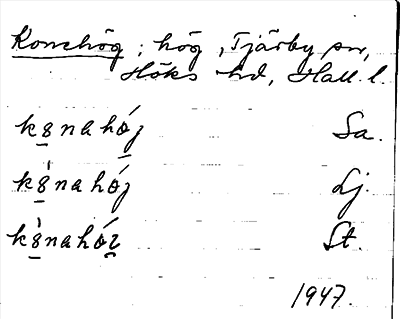 Konehög; hög, Tjärby sn,
Höks hd, Hall. l.
k8nahój Sa.
k8̀nahój Lj.
k8̀nahóꝛ St.
1947.